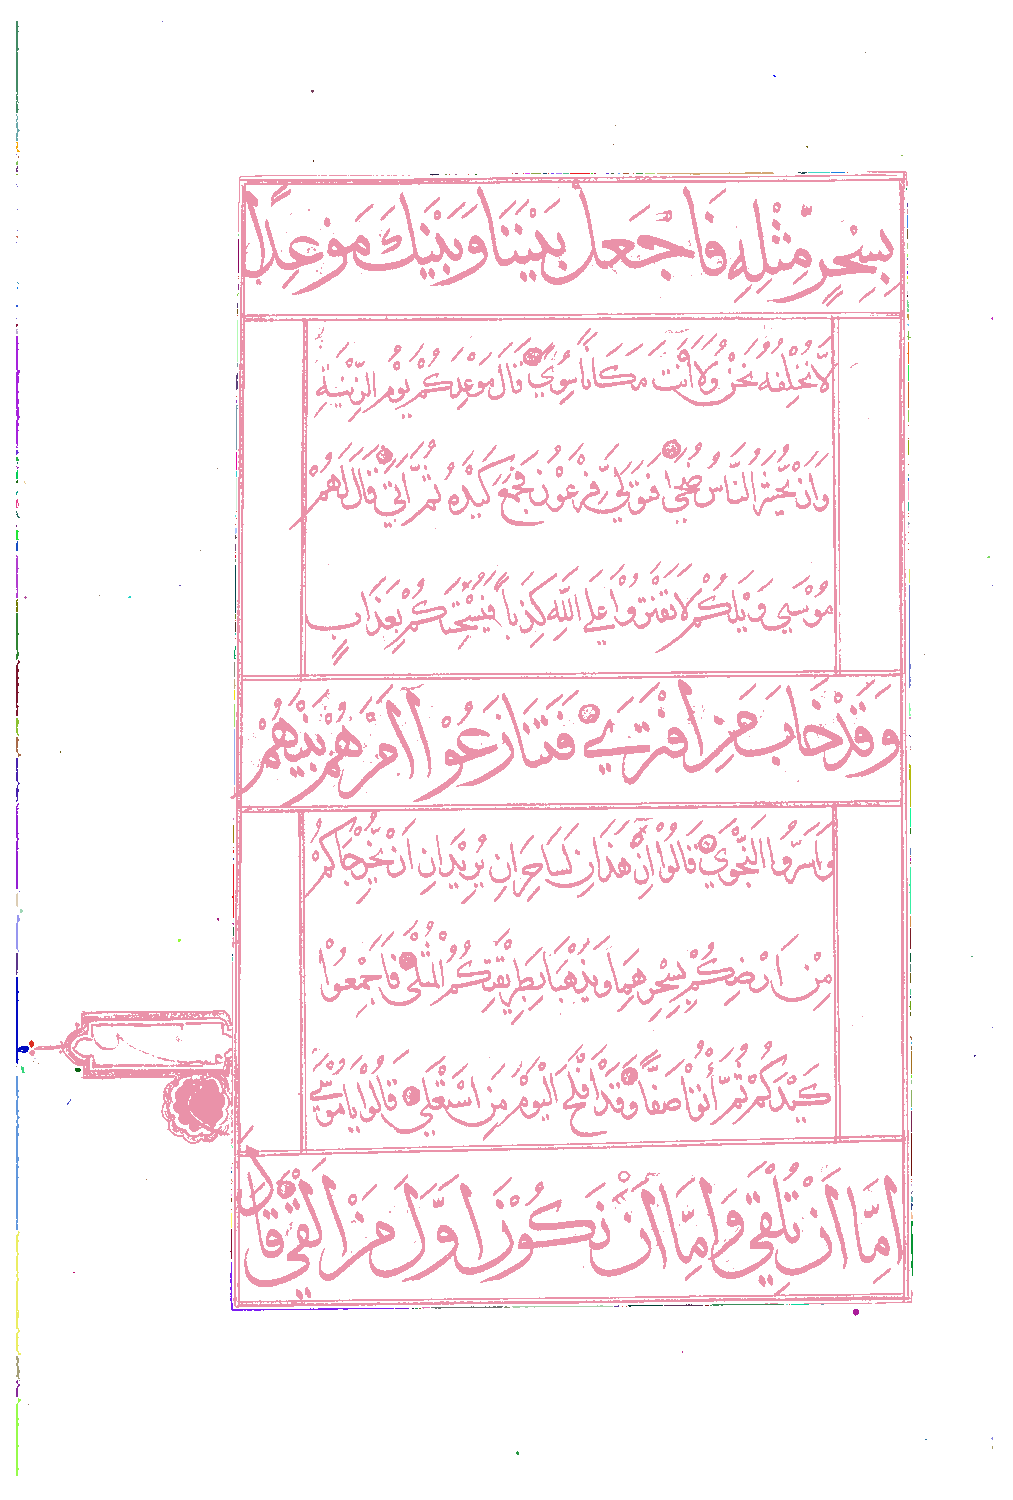 بِسِحْرٍ مِّثْلِهِ فَاجْعَلْ بَيْنَنَا وَبَيْنَكَ مَوْعِدًا
لَّا نُخْلِفُهُ نَحْنُ وَلَا أَنْتَ مَكَانًا سُوًى قَالَ مَوْعِدُكُمْ يَوْمُ الزِّينَةِ
وَاَنْ يُحْشَرَ النَّاسُ ضُحًى فَتَوَلَّى فِرْعَوْنُ فَجَمَعَ كَيْدَهُ ثُمَّ اَتٰى قَالَ لَهُمْ
مُوْسٰى وَيْلَكُمْ لَا تَفْتَرُوْا عَلَى اللّٰهِ كَذِبًا فَيُسْحِتَكُمْ بِعَذَابٍ
وَقَدْ خَابَ مَنِ افْتَرٰى فَتَنَازَعُوْا اَمْرَهُمْ بَيْنَهُمْ
وَاَسَرُّوا النَّجْوٰى قَالُوْا اِنْ هٰذَانِ لَسَاحِرَانِ يُرِيْدَانِ اَنْ يُخْرِجَاكُمْ
مِنْ اَرْضِكُمْ بِسِحْرِهِمَا وَيَذْهَبَا بِطَرِيْقَتِكُمُ الْمُثْلٰى فَاَجْمِعُوْا
كَيْدَكُمْ ثُمَّ ائْتُوْا صَفًّا وَقَدْ اَفْلَحَ الْيَوْمَ مَنِ اسْتَعْلٰى قَالُوْا يَا مُوْسٰى
اِمَّا اَنْ تُلْقِيَ وَاِمَّا اَنْ نَكُوْنَ اَوَّلَ مَنْ اَلْقٰى قَالَ